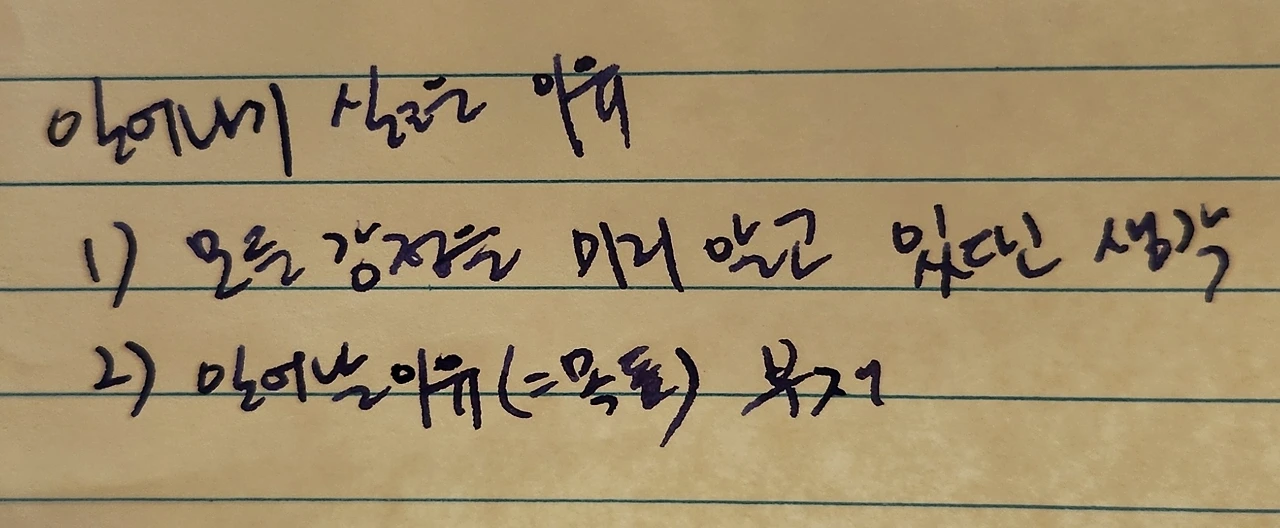 일어나기 싫은 이유
1) 모든 감정을 미리 알고 있다는 생각
2) 일어날 이유(= 목표) 부재